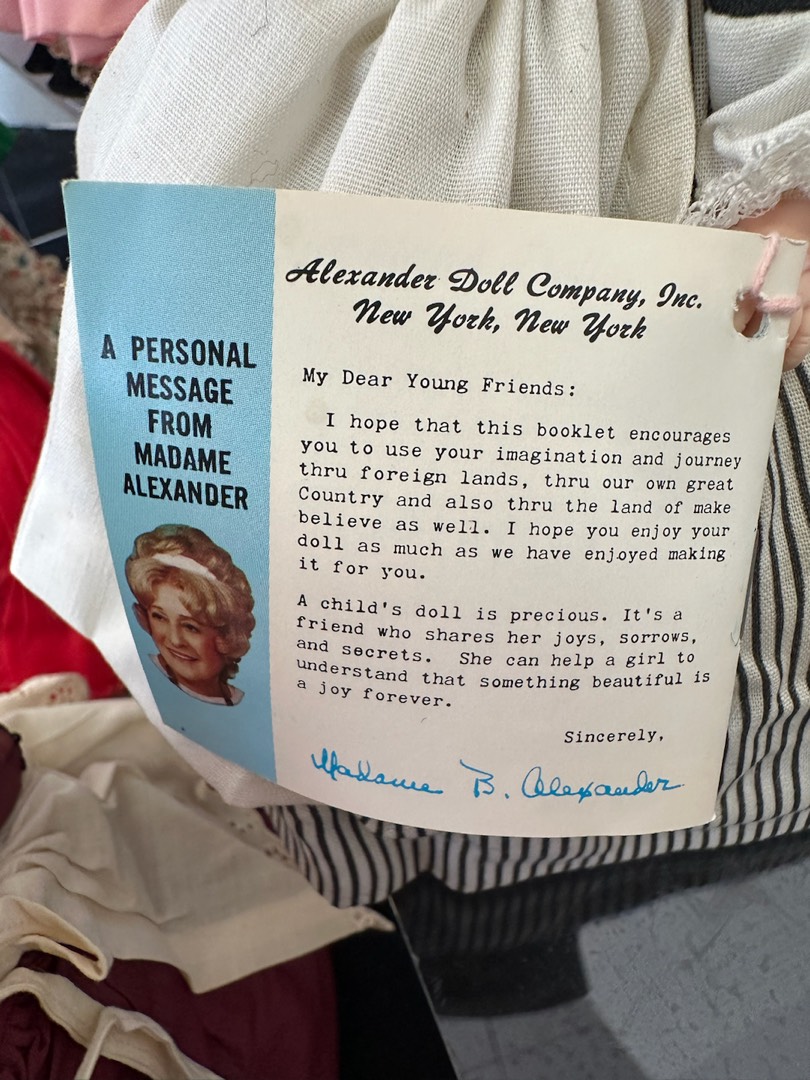 A PERSONAL
MESSAGE
FROM
MADAME
ALEXANDER
Alexander Doll Company, Inc.
New York, New York
My Dear Young Friends:
I hope that this booklet encourages
you to use your imagination and journey
thru foreign lands, thru our own great
Country and also thru the land of make
believe as well. I hope you enjoy your
doll as much as we have enjoyed making
it for you.
A child's doll is precious. It's a
friend who shares her joys, sorrows,
and secrets. She can help a girl to
understand that something beautiful is
a joy forever.
Sincerely,
Madame B. Alexander